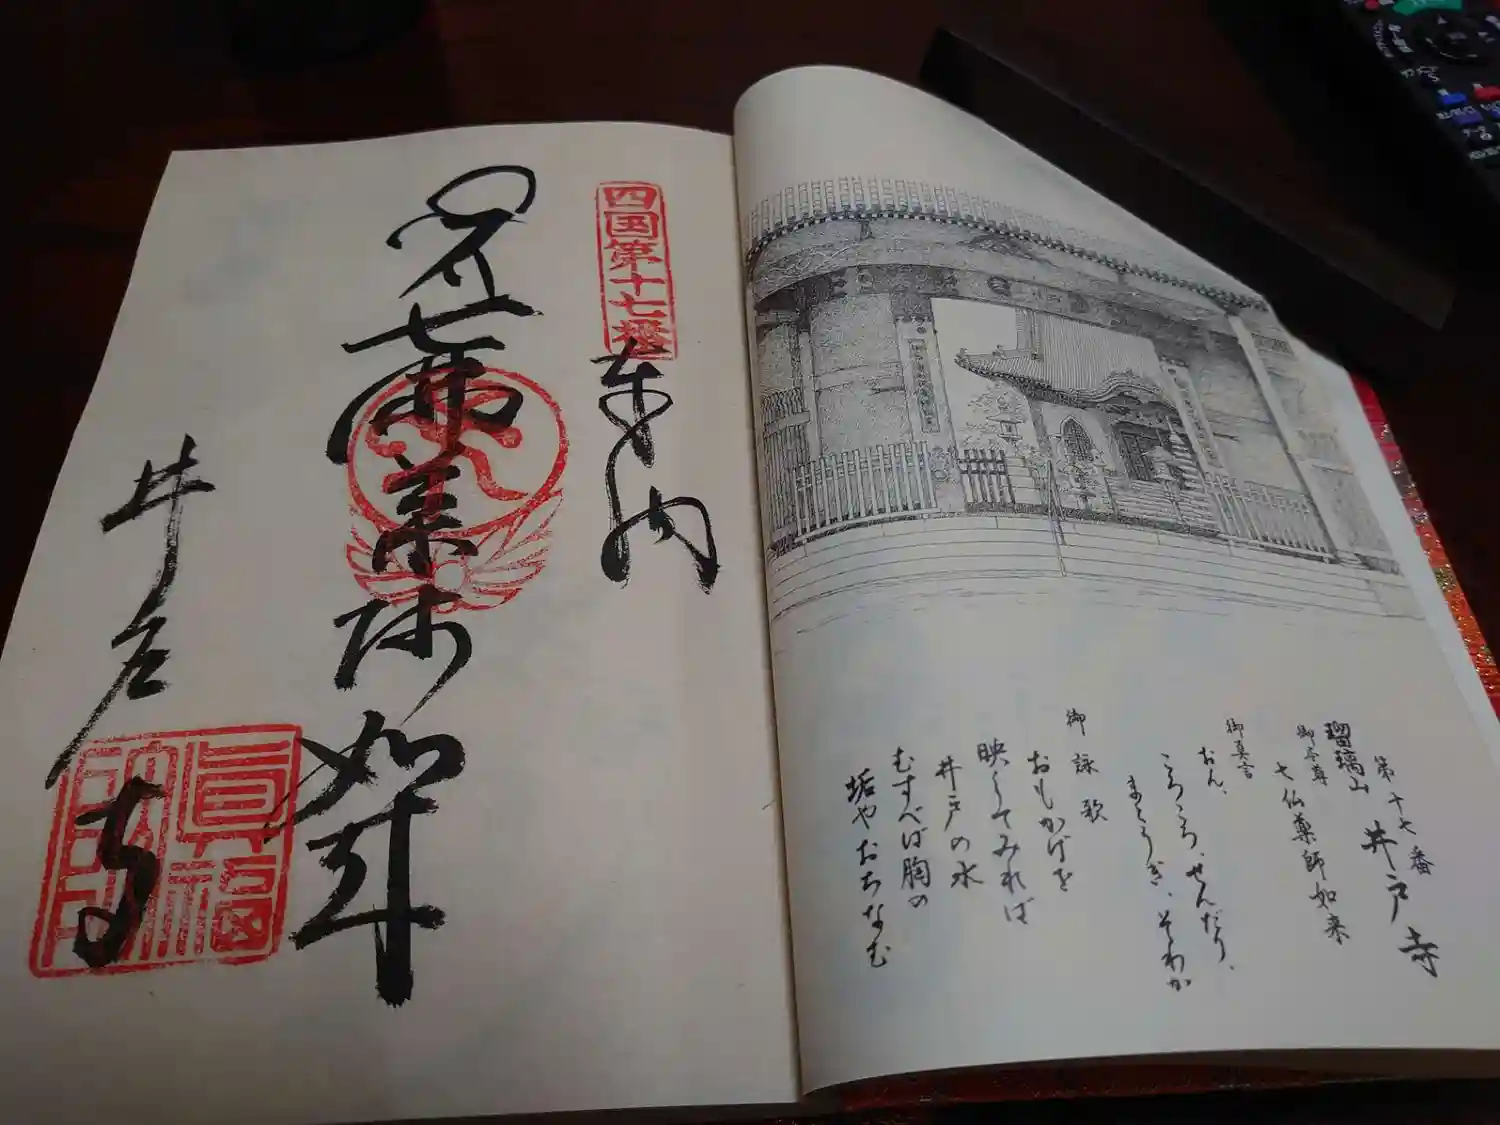 第十七番 井戸寺
瑠璃山
御本尊
七仏薬師如来
御真言
おん、
ころころ、せんだり、
まとうぎ、そわか
御詠歌
おもかげを
映してみれば
井戸の水
むすべば胸の
垢やおちなむ
四国第十七番
奉納
七佛薬師如来
井戸寺